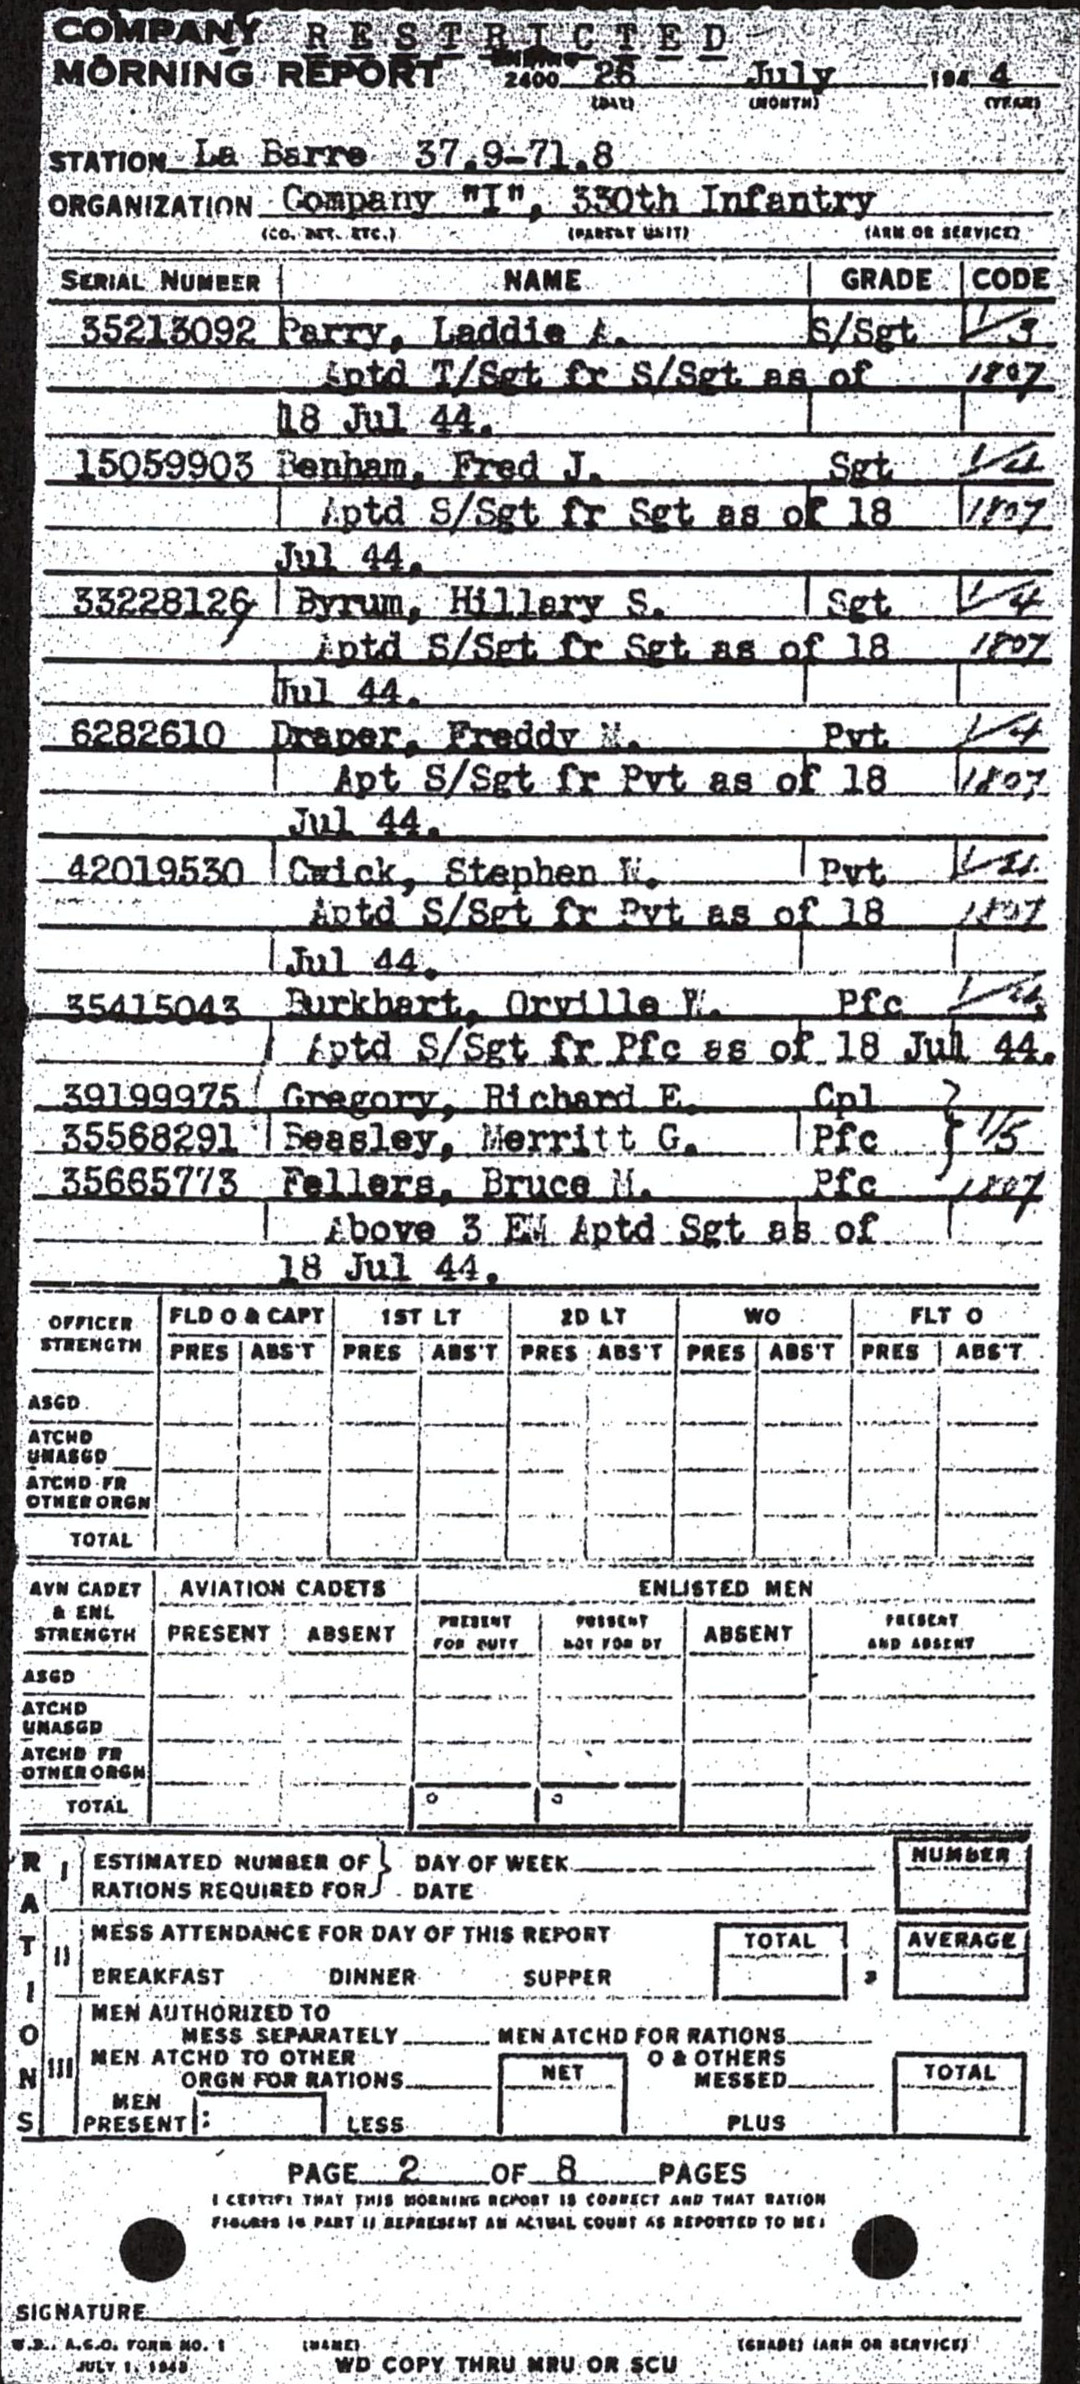 COMPANY RESTRICTED
MORNING REPORT ENDING 2400 26 July 194 4
(DAY) (MONTH) (YEAR)
STATION La Barre 37.9-71.8
ORGANIZATION Company "I", 330th Infantry
(CO. DET. ETC.) (PARENT UNIT) (ARM OR SERVICE)
SERIAL NUMBER NAME GRADE CODE
35213092 Parry, Laddie A. S/Sgt 1/3
Aptd T/Sgt fr S/Sgt as of 1807
18 Jul 44.
15059903 Benham, Fred J. Sgt 1/4
Aptd S/Sgt fr Sgt as of 18 1807
Jul 44.
33228126 Byrum, Hillary S. Sgt 1/4
Aptd S/Sgt fr Sgt as of 18 1807
Jul 44.
6282610 Draper, Freddy M. Pvt 1/4
Apt S/Sgt fr Pvt as of 18 1807
Jul 44.
42019530 Cwick, Stephen W. Pvt 1/4
Aptd S/Sgt fr Pvt as of 18 1807
Jul 44.
35415043 Burkhart, Orville W. Pfc 1/4
Aptd S/Sgt fr Pfc as of 18 Jul 44.
39199975 Gregory, Richard E. Cpl
35568291 Beasley, Merritt G. Pfc } 1/5
35665773 Fellers, Bruce M. Pfc 1807
Above 3 EM Aptd Sgt as of
18 Jul 44.
OFFICER STRENGTH FLD O & CAPT 1ST LT 2D LT WO FLT O
PRES ABS'T PRES ABS'T PRES ABS'T PRES ABS'T PRES ABS'T
ASGD
ATCHD UNASGD
ATCHD FR OTHER ORGN
TOTAL
AVN CADET & ENL STRENGTH AVIATION CADETS ENLISTED MEN
PRESENT ABSENT PRESENT FOR DUTY PRESENT NOT FOR DY ABSENT PRESENT AND ABSENT
ASGD
ATCHD UNASGD
ATCHD FR OTHER ORGN
TOTAL
RATIONS
I ESTIMATED NUMBER OF } DAY OF WEEK NUMBER
RATIONS REQUIRED FOR DATE
II MESS ATTENDANCE FOR DAY OF THIS REPORT TOTAL AVERAGE
BREAKFAST DINNER SUPPER
III MEN AUTHORIZED TO
MESS SEPARATELY MEN ATCHD FOR RATIONS
MEN ATCHD TO OTHER NET O & OTHERS TOTAL
ORGN FOR RATIONS MESSED
MEN
PRESENT : LESS PLUS
PAGE 2 OF 8 PAGES
I CERTIFY THAT THIS MORNING REPORT IS CORRECT AND THAT RATION
FIGURES IN PART II REPRESENT AN ACTUAL COUNT AS REPORTED TO ME:
SIGNATURE
W.D., A.G.O. FORM NO. 1 (NAME) (GRADE) (ARM OR SERVICE)
JULY 1, 1943 WD COPY THRU MRU OR SCU